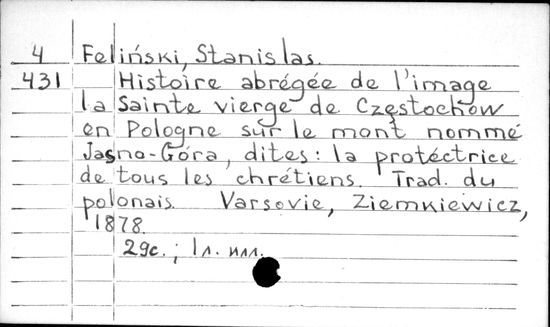 4 Feliński, Stanislas.
431 Histoire abrégée de l'image
la Sainte vierge de Częstochow
en Pologne sur le mont nommé
Jasno-Góra, dites: la protéctrice
de tous les chrétiens. Trad. du
polonais. Varsovie, Ziemkiewicz,
1878.
29c.; 1л. илл.